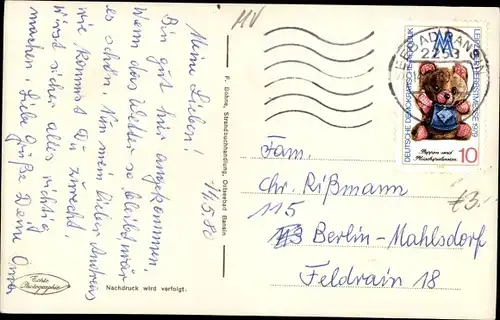 MV
Meine Lieben!
Bin gut hier angekommen.
Wenn das Wetter so bleibt wär
es schön. Nun mein lieber Andreas
wie kommst Du zurecht.
Wirst sicher alles richtig
machen. Liebe Grüße Deine Oma
14.5.80
F. Dohne, Strandbuchhandlung, Ostseebad Bansin
Echte
Photographie
Nachdruck wird verfolgt.
SEEBAD BANSIN
2253
DEUTSCHE DEMOKRATISCHE REPUBLIK
LEIPZIGER HERBSTMESSE 1979
Puppen und
Plüschspielwaren
10
Fam.
Chr. Rißmann
115
Berlin-Mahlsdorf
Feldrain 18
€3.-